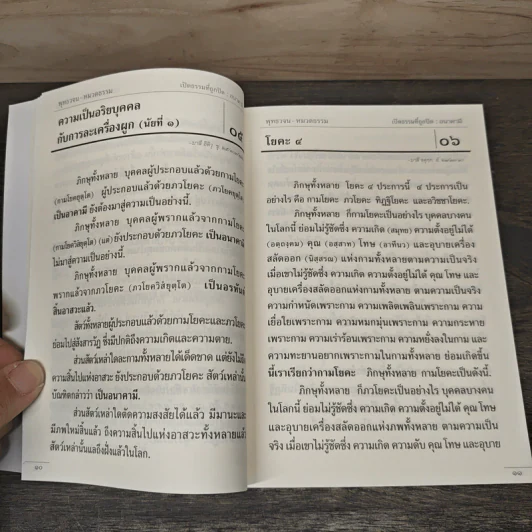 พุทธวจน - หมวดธรรม
เปิดธรรมที่ถูกปิด : อนาคามี
ความเป็นอริยบุคคล
กับการละเครื่องผูก (นัยที่ ๑)
๐๕
ภิกษุทั้งหลาย บุคคลผู้ประกอบแล้วด้วยกามโยคะ
(กามโยคยุตฺโต) ผู้ประกอบแล้วด้วยภวโยคะ (ภวโยคยุตฺโต)
เป็นอาคามี ยังต้องมาสู่ความเป็นอย่างนี้.
ภิกษุทั้งหลาย บุคคลผู้พรากแล้วจากกามโยคะ
(กามโยควิสํยุตฺโต) (แต่) ยังประกอบด้วยภวโยคะ เป็นอนาคามี
ไม่มาสู่ความเป็นอย่างนี้.
ภิกษุทั้งหลาย บุคคลผู้พรากแล้วจากกามโยคะ
พรากแล้วจากภวโยคะ (ภวโยควิสํยุตฺโต) เป็นอรหันต์
สิ้นอาสวะแล้ว.
สัตว์ทั้งหลายผู้ประกอบแล้วด้วยกามโยคะและภวโยคะ
ย่อมไปสู่สังสารวัฏ ซึ่งมีปกติถึงความเกิดและความตาย.
ส่วนสัตว์เหล่าใดละกามทั้งหลายได้เด็ดขาด แต่ยังไม่ถึง
ความสิ้นไปแห่งอาสวะ ยังประกอบด้วยภวโยคะ สัตว์เหล่านั้น
บัณฑิตกล่าวว่า เป็นอนาคามี.
ส่วนสัตว์เหล่าใดตัดความสงสัยได้แล้ว มีมานะและ
มีภพใหม่สิ้นแล้ว ถึงความสิ้นไปแห่งอาสวะทั้งหลายแล้ว
สัตว์เหล่านั้นแลถึงฝั่งแล้วในโลก.
๑๐
พุทธวจน - หมวดธรรม
เปิดธรรมที่ถูกปิด : อนาคามี
โยคะ ๔
๐๖
ภิกษุทั้งหลาย โยคะ ๔ ประการนี้ ๔ ประการเป็น
อย่างไร คือ กามโยคะ ภวโยคะ ทิฏฐิโยคะ และอวิชชาโยคะ.
ภิกษุทั้งหลาย ก็กามโยคะเป็นอย่างไร บุคคลบางคน
ในโลกนี้ ย่อมไม่รู้ชัดซึ่ง ความเกิด (สมุทย) ความตั้งอยู่ไม่ได้
(อตฺถงฺคม) คุณ (อสฺสาท) โทษ (อาทีนว) และอุบายเครื่อง
สลัดออก (นิสฺสรณ) แห่งกามทั้งหลายตามความเป็นจริง
เมื่อเขาไม่รู้ชัดซึ่ง ความเกิด ความตั้งอยู่ไม่ได้ คุณ โทษ และ
อุบายเครื่องสลัดออกแห่งกามทั้งหลาย ตามความเป็นจริง
ความกำหนัดเพราะกาม ความเพลิดเพลินเพราะกาม ความ
เยื่อใยเพราะกาม ความหมกมุ่นเพราะกาม ความกระหาย
เพราะกาม ความเร่าร้อนเพราะกาม ความหยั่งลงในกาม และ
ความทะยานอยากเพราะกามในกามทั้งหลาย ย่อมเกิดขึ้น
นี้เราเรียกว่ากามโยคะ ภิกษุทั้งหลาย กามโยคะเป็นดังนี้.
ภิกษุทั้งหลาย ก็ภวโยคะเป็นอย่างไร บุคคลบางคน
ในโลกนี้ ย่อมไม่รู้ชัดซึ่ง ความเกิด ความตั้งอยู่ไม่ได้ คุณ โทษ
และอุบายเครื่องสลัดออกแห่งภพทั้งหลาย ตามความเป็น
จริง เมื่อเขาไม่รู้ชัดซึ่ง ความเกิด ความดับ คุณ โทษ และอุบาย
๑๑